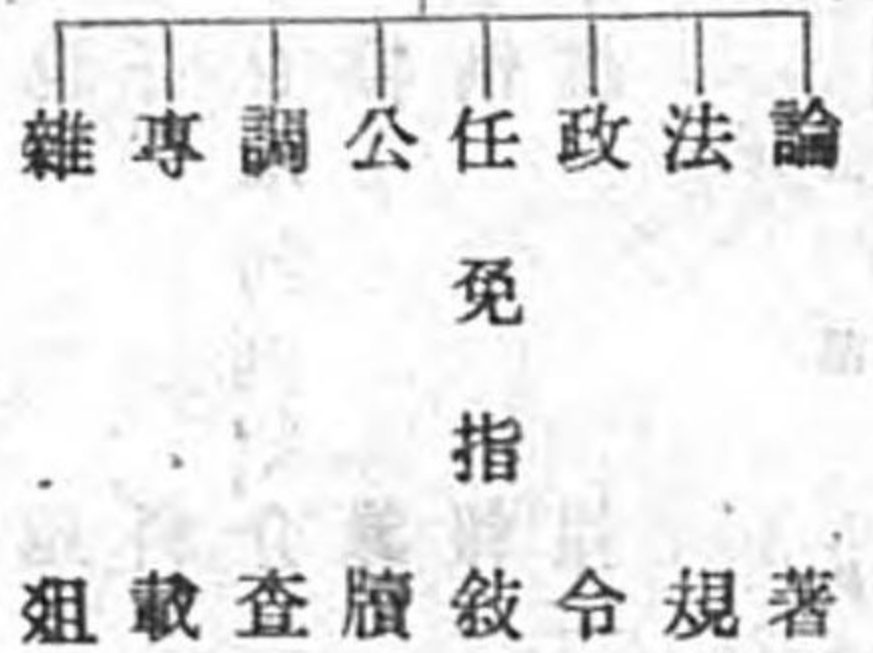 論著
法規
政令
任免指敍
公牘
調查
專載
雜俎